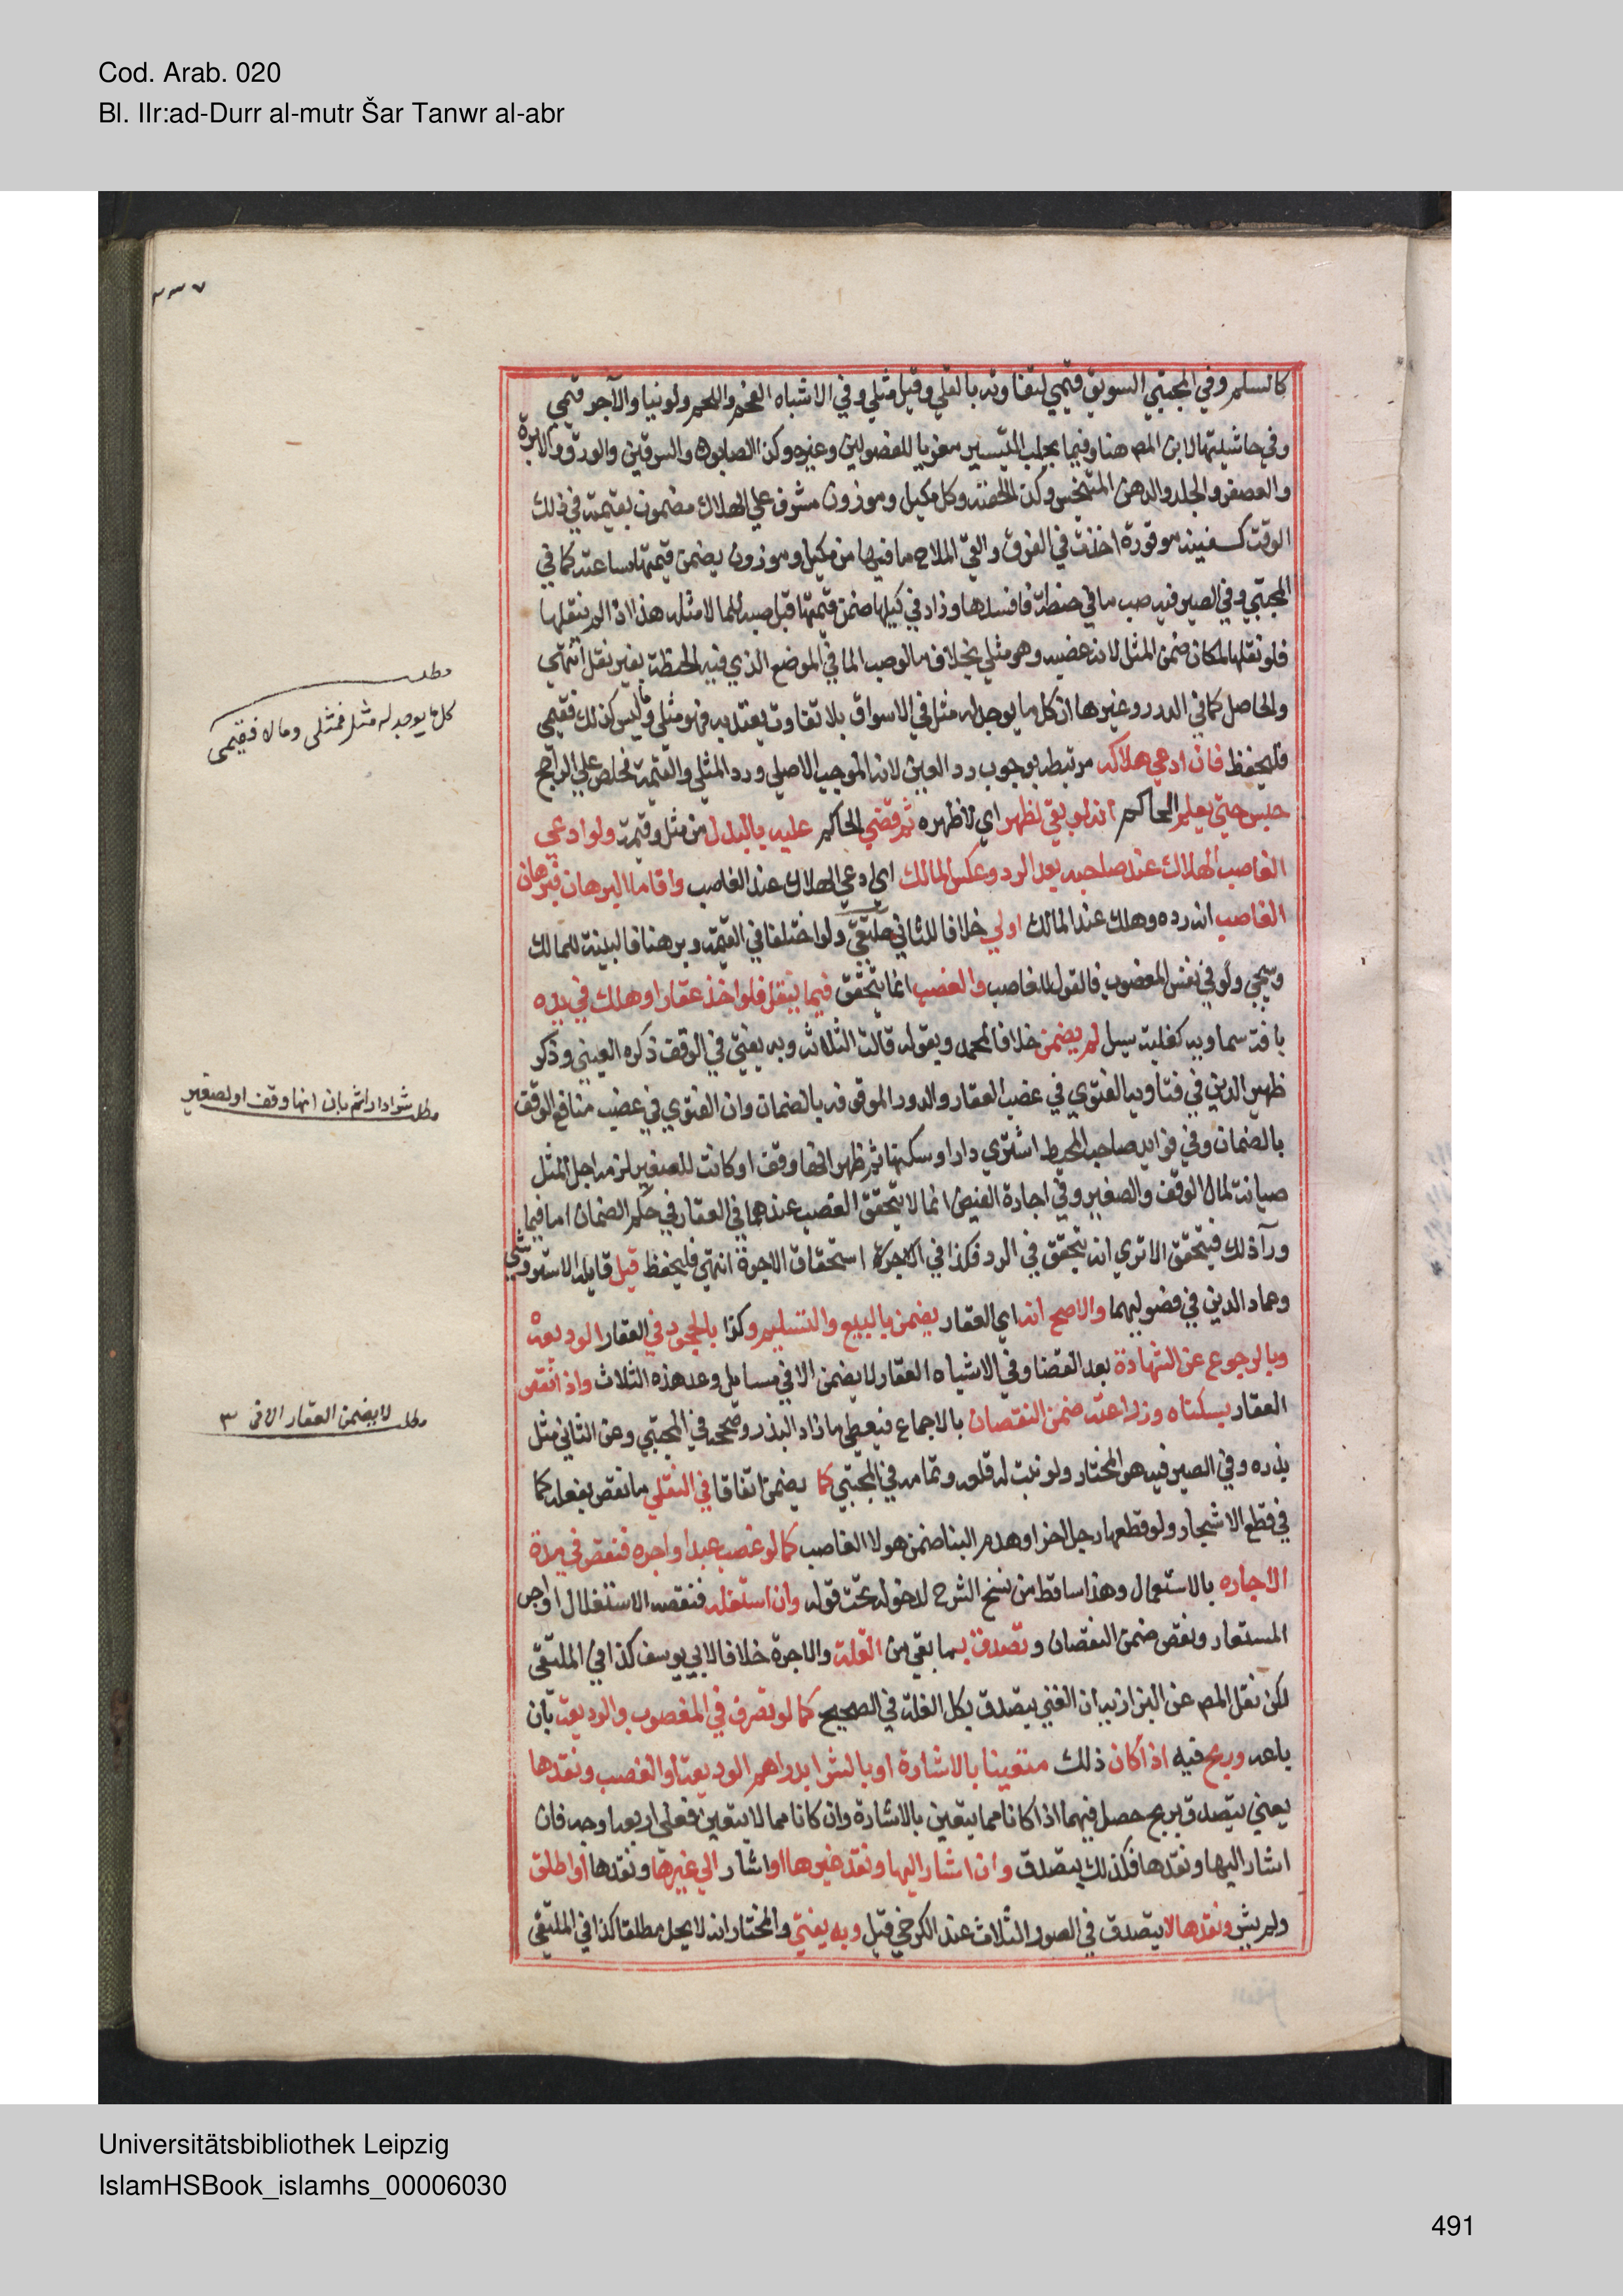 Cod. Arab. 020
Bl. IIr:ad-Durr al-mutr Šar Tanwr al-abr
٣٣٧
كالسلم وفي المجتبي السويق قيمي لتفاوته بالقلي وقيل مثلي وفي الاشباه الفحم واللحم ولو نيا والآجر قيمي
وفي حاشيتها لابن المص هنا وفيما يجلب التيسير معزيا للفصولين وغيره وكذا الصابون والسرقين والورق والابرة
والعصفر والجلد والدهن المتنجس وكذا الحفنة وكل مكيل وموزون مشرف علي الهلاك مضمون بقيمته في ذلك
الوقت كسفينه موقورة اخذت في الغرق والقي الملاح ما فيها من مكيل وموزون يضمن قيمتها ساعته كما في
المجتبي وفي الصيرفيه صب ما في حنطة فافسدها وزاد في كيلها ضمن قيمتها قبل صبه الما لا مثله هذا اذا لم ينقلها
فلو نقلها لمكان ضمن المثل لانه غصبه وهو مثلي بخلاف ما لو صب الما في الموضع الذي فيه الحنطة بغير نقل انتهي
والحاصل كما في الدرر وغيرها ان كل ما يوجد له مثل في الاسواق بلا تفاوت يعتد به فهو مثلي وما ليس كذلك فقيمي
فليحفظ فان ادعي هلاكه مرتبط بوجوب رد العين لانه الموجب الاصلي ورد المثلي والقيمة مخلص علي الراجح
حبس حتي يعلم الحاكم انه لو بقي لظهر اي لاظهره ثم قضي الحاكم عليه بالبدل من مثل وقيمة ولو ادعي
الغاصب الهلاك عند صاحبه بعد الرد وعكس المالك اي ادعي الهلاك عند الغاصب واقاما البرهان فبرهان
الغاصب انه رده وهلك عند المالك اولي خلافا للثاني ملتقي ولو اختلفا في القيمة وبرهنا فالبينة للمالك
وسيجي ولو في نفس المغصوب فالقول للغاصب والغصب انما يتحقق فيما ينقل فلو اخذ عقارا وهلك في يده
بافة سماويه كغلبة سيل لم يضمن خلافا لمحمد وبقوله قالت الثلاثة وبه يفتي في الوقف ذكره العيني وذكر
ظهير الدين في فتاويه الفتوي في غصب العقار والدور الموقوفه بالضمان وان الفتوي في غصب منافع الوقف
بالضمان وفي فوايد صاحب المحيط اشتري دارا وسكنها ثم ظهر انها وقف او كانت للصغير لزمه اجر المثل
صيانة لمال الوقف والصغير وفي اجارة الفيض انما لا يتحقق الغصب عندهما في العقار في حكم الضمان اما فيما
ورآ ذلك فيتحقق الا تري انه يتحقق في الرد فكذا في الاجرة استحقاق الاجرة انتهي فليحفظ قيل قايله الاستروشني
وعماد الدين في فصوليهما والاصح انه اي العقار يضمن بالبيع والتسليم وكذا بالجحود في العقار الوديعة
وبالرجوع عن الشهادة بعد القضا وفي الاشباه العقار لا يضمن الا في مسايل وعد هذه الثلاث واذا نقص
العقار بسكناه وزراعته ضمن النقصان بالاجماع فيعطي ما زاد البذر وصححه في المجتبي وعن الثاني مثل
بذره وفي الصيرفيه هو المختار ولو نبت له قلعه وتمامه في المجتبي كما يضمن اتفاقا في النقلي ما نقص بفعله كما
في قطع الاشجار ولو قطعها رجل اخر او هدم البنا ضمن هو لا الغاصب كما لو غصب عبدا واجره فنقص في مدة
الاجاره بالاستعمال وهذا ساقط من نسخ الشرح لدخوله تحت قوله وان استغله فنقصه الاستغلال او اجر
المستعار ونقص ضمن النقصان وتصدق بما بقي من الغلة والاجرة خلافا لابي يوسف كذا في الملتقي
لكن نقل المص عن البزازيه ان الغني يتصدق بكل الغلة في الصحيح كما لو تصرف في المغصوب والوديعة بان
باعه وربح فيه اذا كان ذلك متعينا بالاشارة او بالشرا بدراهم الوديعة او الغصب ونقدها
يعني يتصدق بربح حصل فيهما اذا كانا مما يتعين بالاشارة وان كانا مما لا يتعين فعلي اربعة اوجه فان
اشار اليها ونقدها فكذلك يتصدق وان اشار اليها ونقد غيرها او اشار الي غيرها ونقدها او اطلق
ولم يشر ونقدها لا يتصدق في الصور الثلاث عند الكرخي قيل وبه يفتي والمختار انه لا يحل مطلقا كذا في الملتقي
مطلب
كل ما يوجد له مثل فمثلى وما لا فقيمى
مطلب شرا دارا ثم بان انها وقف او لصغير
مطلب لا يضمن العقار الا فى ٣
Universitätsbibliothek Leipzig
IslamHSBook_islamhs_00006030
491